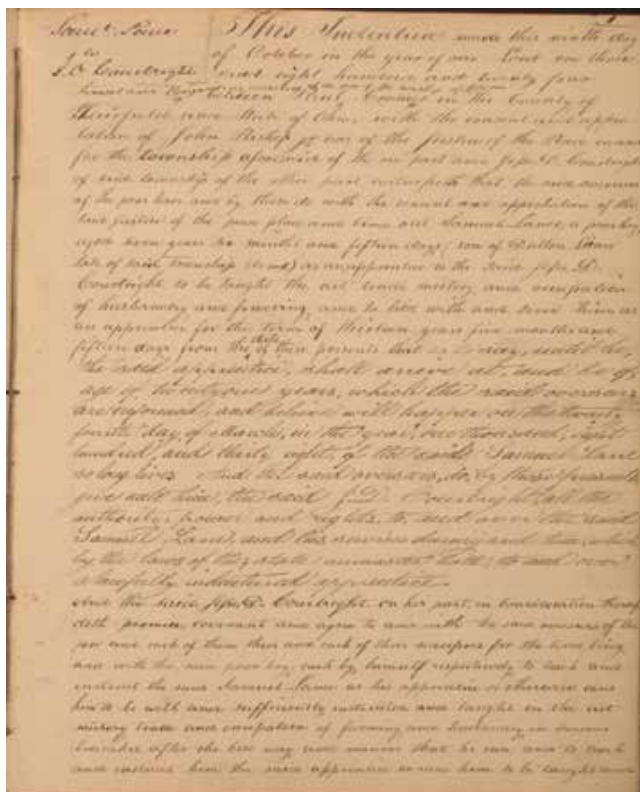 Saml. Lane
to
J. D. Courtright
This Indenture made this ninth day
of October in the year of our Lord one thou
sand eight hundred and twenty four
between
County of
Fairfield and State of Ohio, with the consent and appro
bation of John Bishop of one of the Justices of the Peace
for the township aforesaid of the one part and Jesse D. Courtright
of said township of the other part witnesseth that the said overseers
of the poor have and by these do with the consent and approbation of the
said Justice of the peace place and bind out Samuel Lane, a poor boy
aged seven years six months and fifteen days, son of Dutton Lane
late of said Township as an apprentice to the said Jesse D.
Courtright to be taught the art trade mistery and occupation
of husbandry and farming, and to live with and serve him as
an apprentice for the term of thirteen years five months and
fifteen days from the date of these presents that is to say, until he,
the said apprentice, shall arrive at, and be of,
age of twentyone years, which the said overseers
are informed, and believe will happen on the twenty
fourth day, of March, in the year, one thousand, eight
hundred, and thirty eight, if the said, Samuel Lane
so long lives. And the said overseers, do, by these presents
give unto him, the said J. D. Courtright all the
authority, power and rights, to, and over the said
Samuel, Lane, and his services during said time, which
by the laws of this state to and over
a lawfully indentured apprentice.
And the said Jesse D. Courtright, on his part, in consideration thereof
doth promise, covenant and agree to and with the said overseers of the
poor and each of them their and each of their successors for the time being
and with the said poor boy, each by himself respectively to teach and
instruct the said Samuel Lane as his apprentice or otherwise cause
him to be well and sufficiently instructed and taught in the art
mistery trade and occupation of farming and husbandry in
after the best way and manner that he can and to teach
and instruct him the said apprentice or cause him to be taught